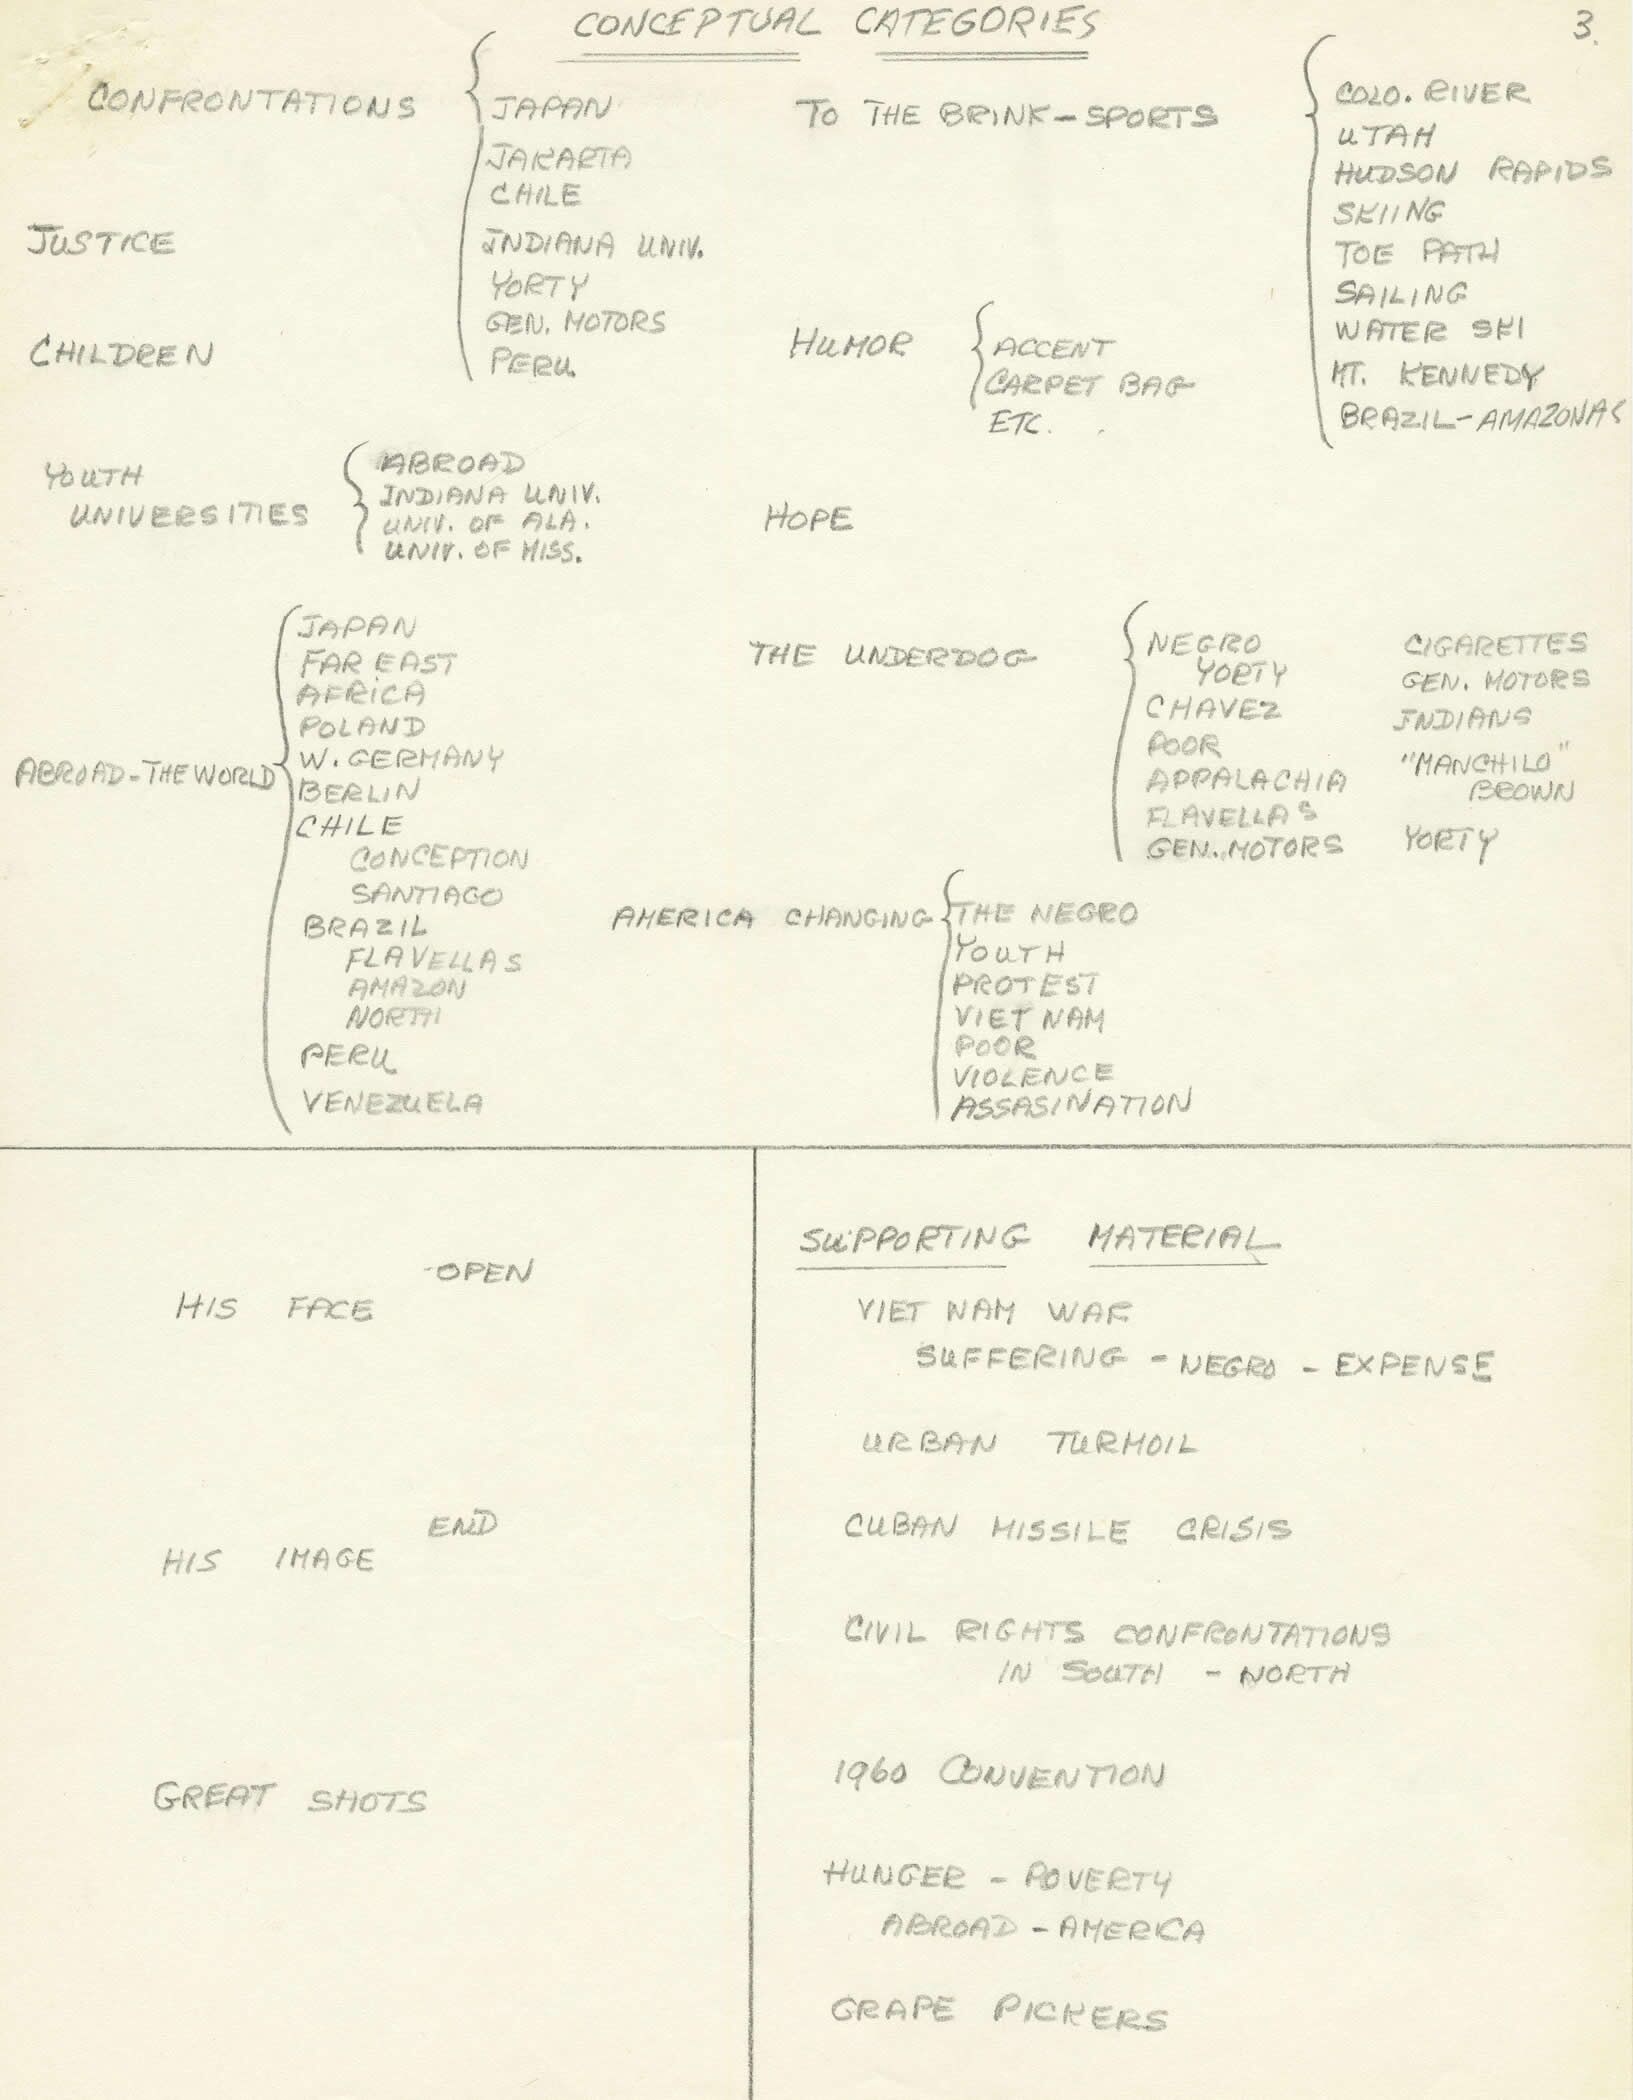 CONCEPTUAL CATEGORIES
3.
CONFRONTATIONS
JAPAN
JAKARTA
CHILE
INDIANA UNIV.
YORTY
GEN. MOTORS
PERU
JUSTICE
CHILDREN
YOUTH
UNIVERSITIES
ABROAD
INDIANA UNIV.
UNIV. OF ALA.
UNIV. OF MISS.
ABROAD-THE WORLD
JAPAN
FAR EAST
AFRICA
POLAND
W. GERMANY
BERLIN
CHILE
CONCEPTION
SANTIAGO
BRAZIL
FLAVELLAS
AMAZON
NORTH
PERU
VENEZUELA
TO THE BRINK-SPORTS
COLO. RIVER
UTAH
HUDSON RAPIDS
SKIING
TOE PATH
SAILING
WATER SKI
MT. KENNEDY
BRAZIL-AMAZONAS
HUMOR
ACCENT
CARPET BAG
ETC.
HOPE
THE UNDERDOG
NEGRO
YORTY
CHAVEZ
POOR
APPALACHIA
FLAVELLAS
GEN. MOTORS
CIGARETTES
GEN. MOTORS
INDIANS
"MANCHILD"
BROWN
YORTY
AMERICA CHANGING
THE NEGRO
YOUTH
PROTEST
VIET NAM
POOR
VIOLENCE
ASSASINATION
-OPEN
HIS FACE
END
HIS IMAGE
GREAT SHOTS
SUPPORTING MATERIAL
VIET NAM WAR
SUFFERING - NEGRO - EXPENSE
URBAN TURMOIL
CUBAN MISSILE CRISIS
CIVIL RIGHTS CONFRONTATIONS
IN SOUTH - NORTH
1960 CONVENTION
HUNGER - POVERTY
ABROAD - AMERICA
GRAPE PICKERS